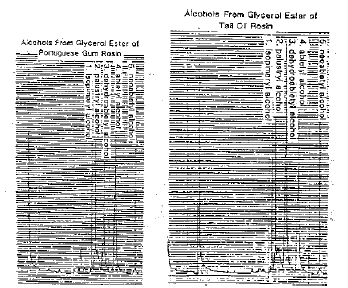 Alcohols From Glycerol Ester of
Portuguese Gum Rosin
5. neoabietyl alcohol
4. abietyl alcohol
3. dehydroabietyl alcohol
2. palustryl alcohol
1. isopimaryl alcohol
Alcohols From Glycerol Ester of
Tall Oil Rosin
5. neoabietyl alcohol
4. abietyl alcohol
3. dehydroabietyl alcohol
2. palustryl alcohol
1. isopimaryl alcohol